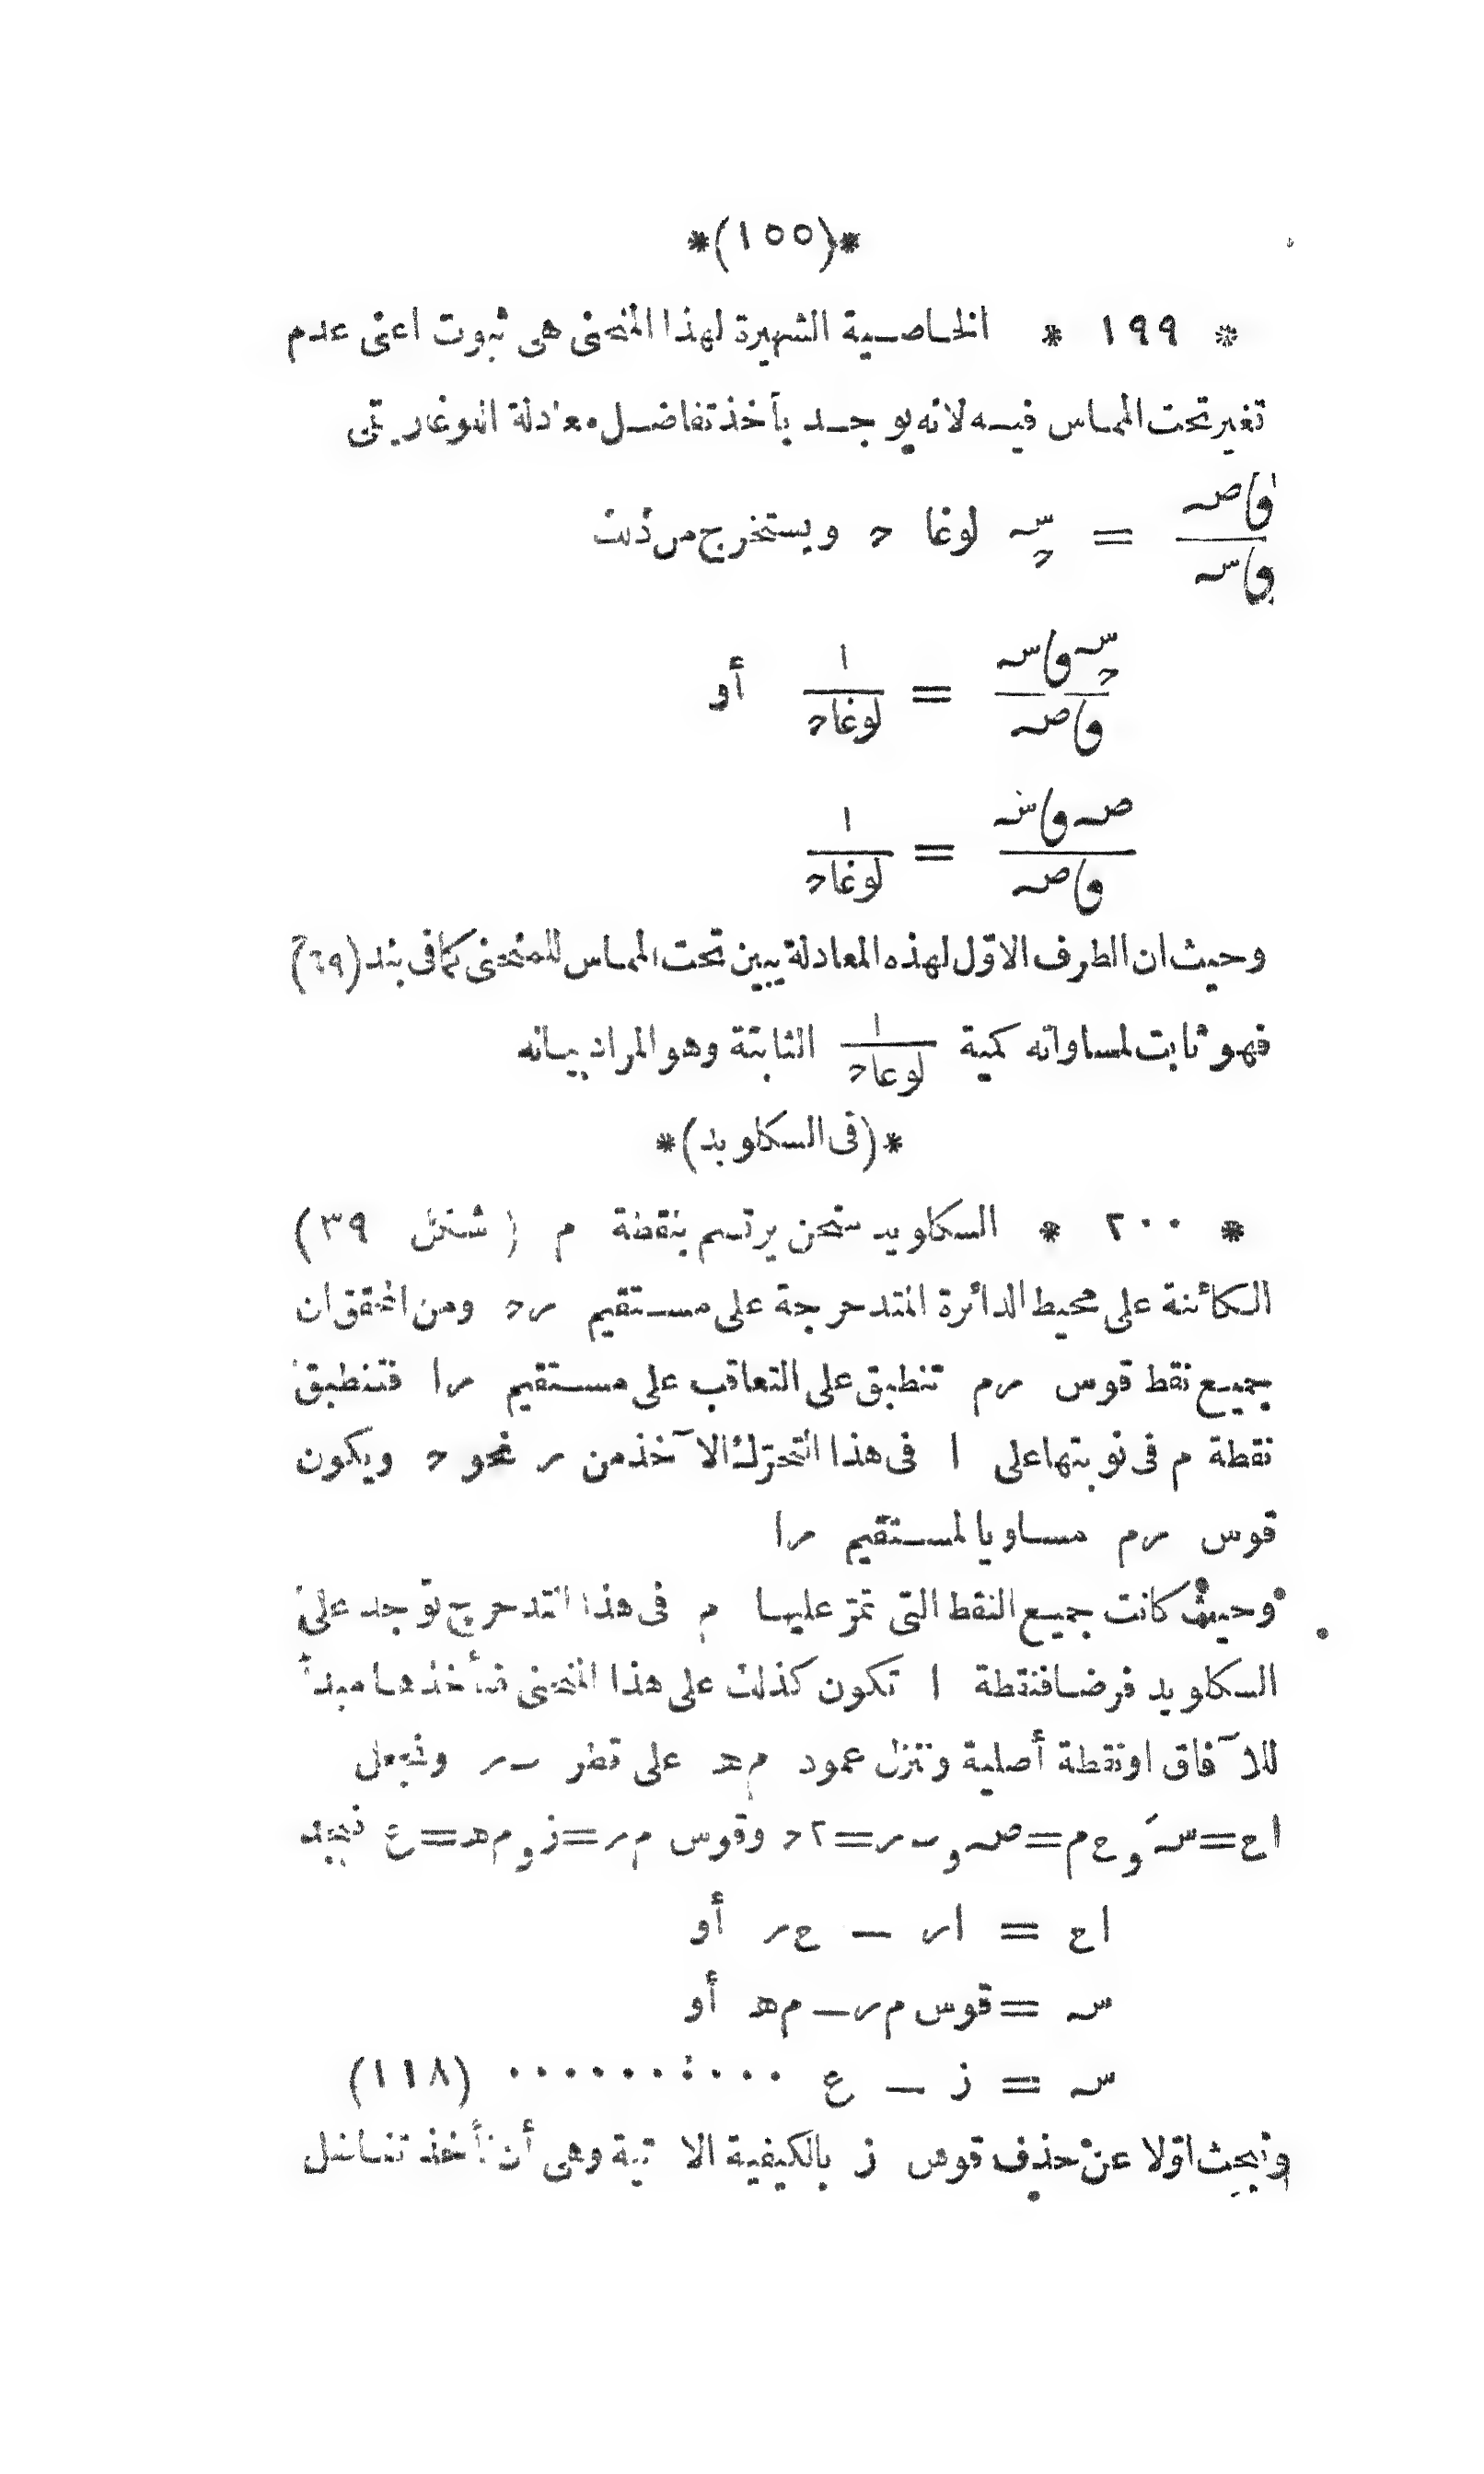 *(١٥٥)*
* ١٩٩ * الخاصية الشهيرة لهذا المنحنى هى ثبوت اعنى عدم
تغير تحت المماس فيه لانه يوجد بأخذ تفاضل معادلة اللوغاريتمى
وٯاصہ / وٯاسہ = حـسہ لوغا حـ ويستخرج من ذلك
حـسہ وٯاسہ / وٯاصہ = ١ / لوغاحـ أو
صہ وٯاسہ / وٯاصہ = ١ / لوغاحـ
وحيث ان الطرف الاوّل لهذه المعادلة يبين تحت المماس للمنحنى كما فى بند (٦٩)
فهو ثابت لمساواته كمية ١ / لوغاحـ الثابتة وهو المراد بيانه
*(فى السكلويد)*
* ٢٠٠ * السكلويد منحن يرتسم بنقطة م (شكل ٣٩)
الكائنة على محيط الدائرة المتدحرجة على مستقيم رحـ ومن المحقق ان
جميع نقط قوس رم تنطبق على التعاقب على مستقيم را فتنطبق
نقطة م فى نوبتها على ا فى هذا التحرّك الآخذ من ر نحو حـ ويكون
قوس رم مساويا لمستقيم را
وحيث كانت جميع النقط التى تمرّ عليها م فى هذا التدحرج توجد على
السكلويد فرضا فنقطة ا تكون كذلك على هذا المنحنى فنأخذها مبدأ
للآفاق او نقطة أصلية وننزل عمود مهـ على قطر ٮر ونجعل
اع=سہ و عم=صہ و ٮر=٢حـ وقوس مر=ز و مهـ=ع فيجد
اع = ار — عر أو
سہ = قوس مر — مهـ أو
سہ = ز — ع .......... (١١٨)
ونبحث اوّلا عن حذف قوس ز بالكيفية الآتية وهى أن نأخذ تفاضل